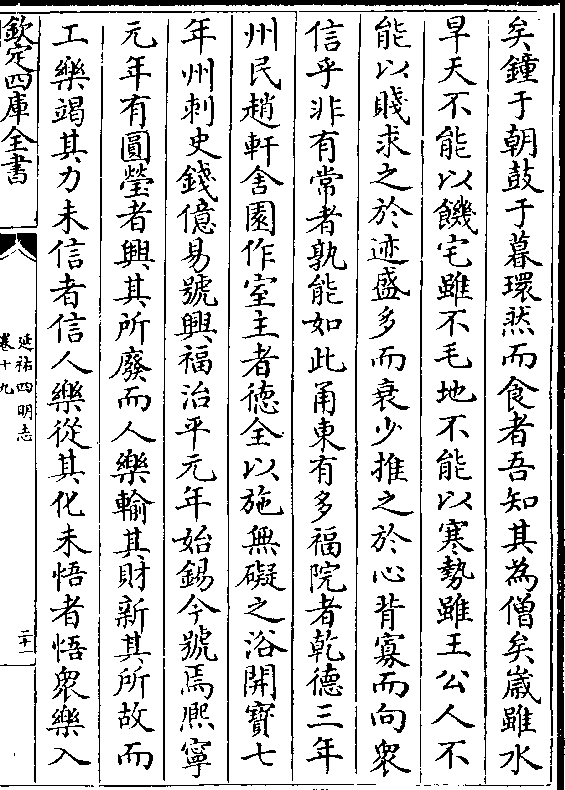 矣鐘于朝鼓于暮環然而食者吾知其為僧矣歲雖水
旱天不能以饑宅雖不毛地不能以寒勢雖王公人不
能以賤求之於迹盛多而衰少推之於心背寡而向衆
信乎非有常者孰能如此甬東有多福院者乾德三年
州民趙軒舍園作室主者德全以施無礙之浴開寳七
年州刺史錢億易號興福治平元年始錫今號焉熈寧
元年有圓瑩者興其所廢而人樂輸其財新其所故而
工樂竭其力未信者信人樂從其化未悟者悟衆樂入
欽定四庫全書
延祐四明志
卷十九
二十一